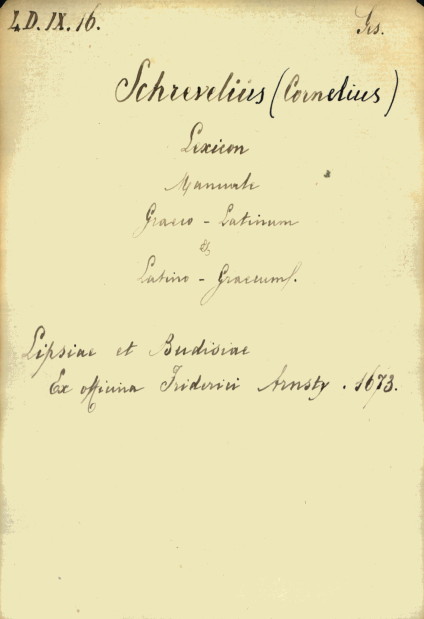 L.D. IX. 16.
Schrevelius (Cornelius)
Lexicon
Manuale
Graeco - Latinum
&
Latino - Graecum.
Lipsiae et Budisiae
Ex officina Friderici Arnsty. 1673.